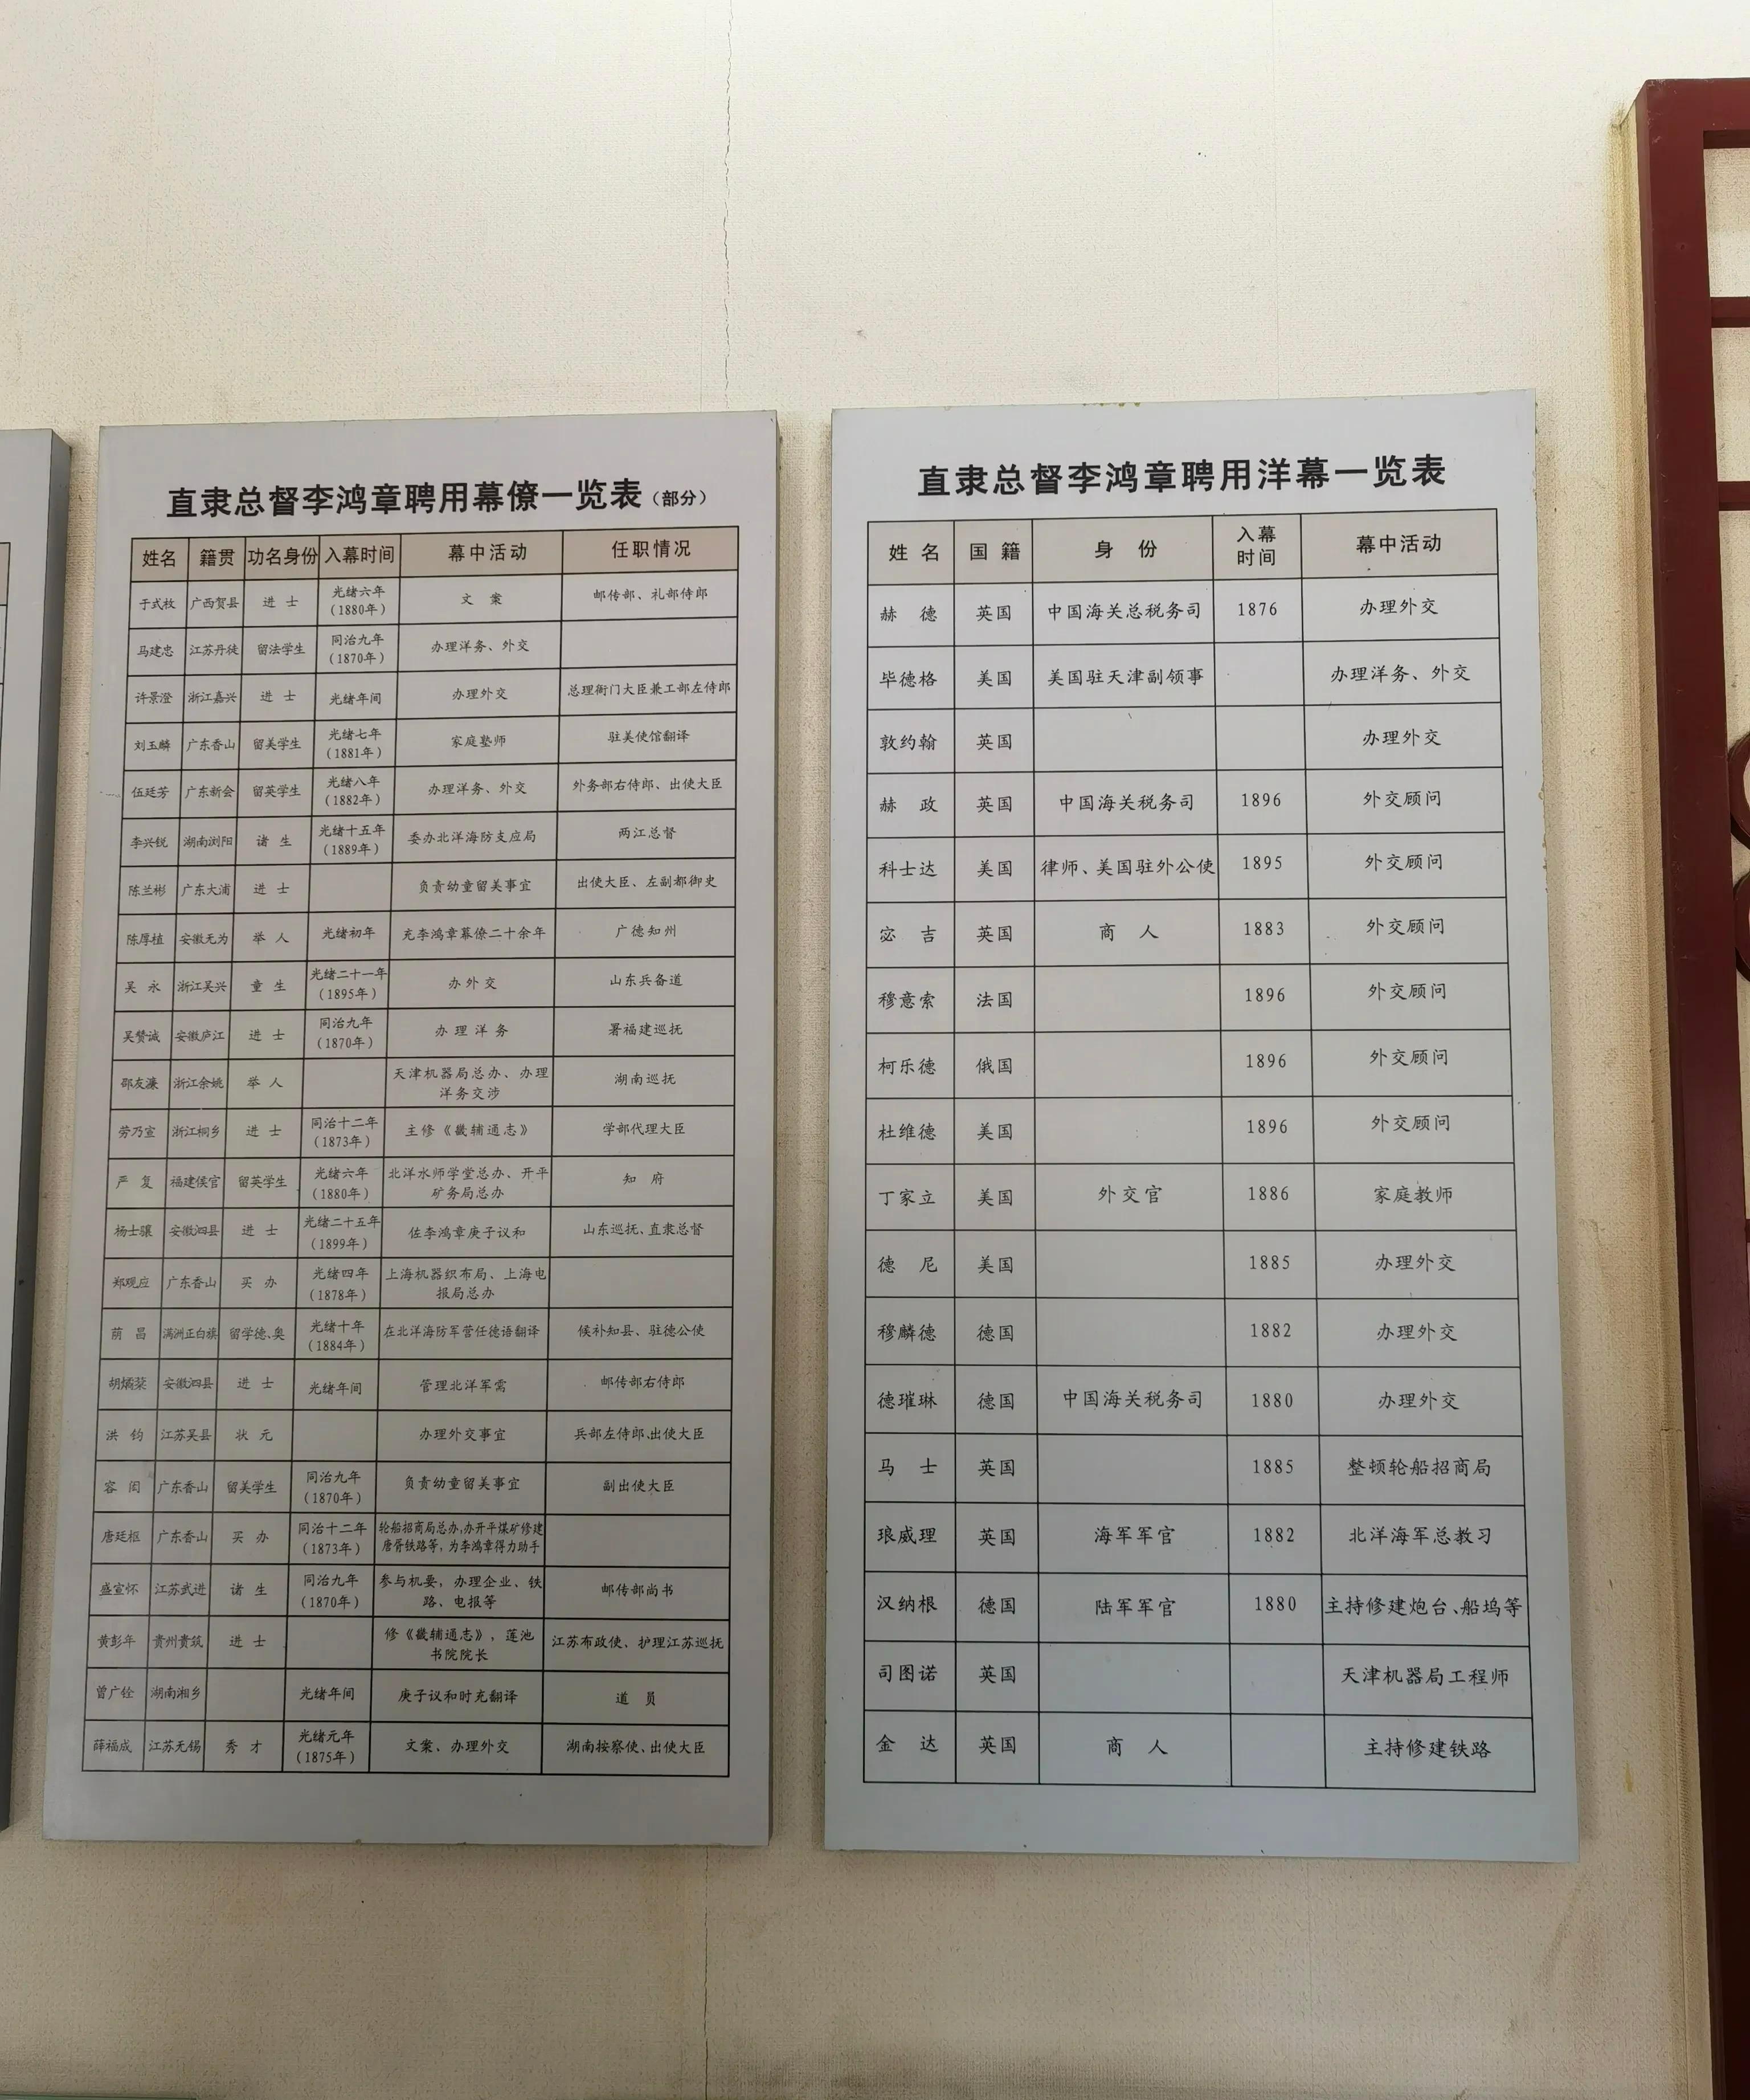 直隶总督李鸿章聘用幕僚一览表（部分）
姓名 籍贯 功名身份 入幕时间 幕中活动 任职情况
于式枚 广西贺县 进士 光绪六年（1880年） 文案 邮传部、礼部侍郎
马建忠 江苏丹徒 留法学生 同治九年（1870年） 办理洋务、外交
许景澄 浙江嘉兴 进士 光绪年间 办理外交 总理衙门大臣兼工部左侍郎
刘玉麟 广东香山 留美学生 光绪七年（1881年） 家庭塾师 驻美使馆翻译
伍廷芳 广东新会 留英学生 光绪八年（1882年） 办理洋务、外交 外务部右侍郎、出使大臣
李兴锐 湖南浏阳 诸生 光绪十五年（1889年） 委办北洋海防支应局 两江总督
陈兰彬 广东大浦 进士 负责幼童留美事宜 出使大臣、左副都御史
陈厚植 安徽无为 举人 光绪初年 充李鸿章幕僚二十余年 广德知州
吴永 浙江吴兴 童生 光绪二十一年（1895年） 办外交 山东兵备道
吴赞诚 安徽庐江 进士 同治九年（1870年） 办理洋务 署福建巡抚
邵友濂 浙江余姚 举人 天津机器局总办、办理洋务交涉 湖南巡抚
劳乃宣 浙江桐乡 进士 同治十二年（1873年） 主修《畿辅通志》 学部代理大臣
严复 福建侯官 留英学生 光绪六年（1880年） 北洋水师学堂总办、开平矿务局总办 知府
杨士骧 安徽泗县 进士 光绪二十五年（1899年） 佐李鸿章庚子议和 山东巡抚、直隶总督
郑观应 广东香山 买办 光绪四年（1878年） 上海机器织布局、上海电报局总办
荫昌 满洲正白旗 留学德、奥 光绪十年（1884年） 在北洋海防军营任德语翻译 候补知县、驻德公使
胡燏棻 安徽泗县 进士 光绪年间 管理北洋军需 邮传部右侍郎
洪钧 江苏吴县 状元 办理外交事宜 兵部左侍郎、出使大臣
容闳 广东香山 留美学生 同治九年（1870年） 负责幼童留美事宜 副出使大臣
唐廷枢 广东香山 买办 同治十二年（1873年） 轮船招商局总办，办开平煤矿修建唐胥铁路等，为李鸿章得力助手
盛宣怀 江苏武进 诸生 同治九年（1870年） 参与机要，办理企业、铁路、电报等 邮传部尚书
黄彭年 贵州贵筑 进士 修《畿辅通志》，莲池书院院长 江苏布政使、护理江苏巡抚
曾广铨 湖南湘乡 光绪年间 庚子议和时充翻译 道员
薛福成 江苏无锡 秀才 光绪元年（1875年） 文案、办理外交 湖南按察使、出使大臣
直隶总督李鸿章聘用洋幕一览表
姓名 国籍 身份 入幕时间 幕中活动
赫德 英国 中国海关总税务司 1876 办理外交
毕德格 美国 美国驻天津副领事 办理洋务、外交
敦约翰 英国 办理外交
赫政 英国 中国海关税务司 1896 外交顾问
科士达 美国 律师、美国驻外公使 1895 外交顾问
宓吉 英国 商人 1883 外交顾问
穆意索 法国 1896 外交顾问
柯乐德 俄国 1896 外交顾问
杜维德 美国 1896 外交顾问
丁家立 美国 外交官 1886 家庭教师
德尼 美国 1885 办理外交
穆麟德 德国 1882 办理外交
德璀琳 德国 中国海关税务司 1880 办理外交
马士 英国 1885 整顿轮船招商局
琅威理 英国 海军军官 1882 北洋海军总教习
汉纳根 德国 陆军军官 1880 主持修建炮台、船坞等
司图诺 英国 天津机器局工程师
金达 英国 商人 主持修建铁路